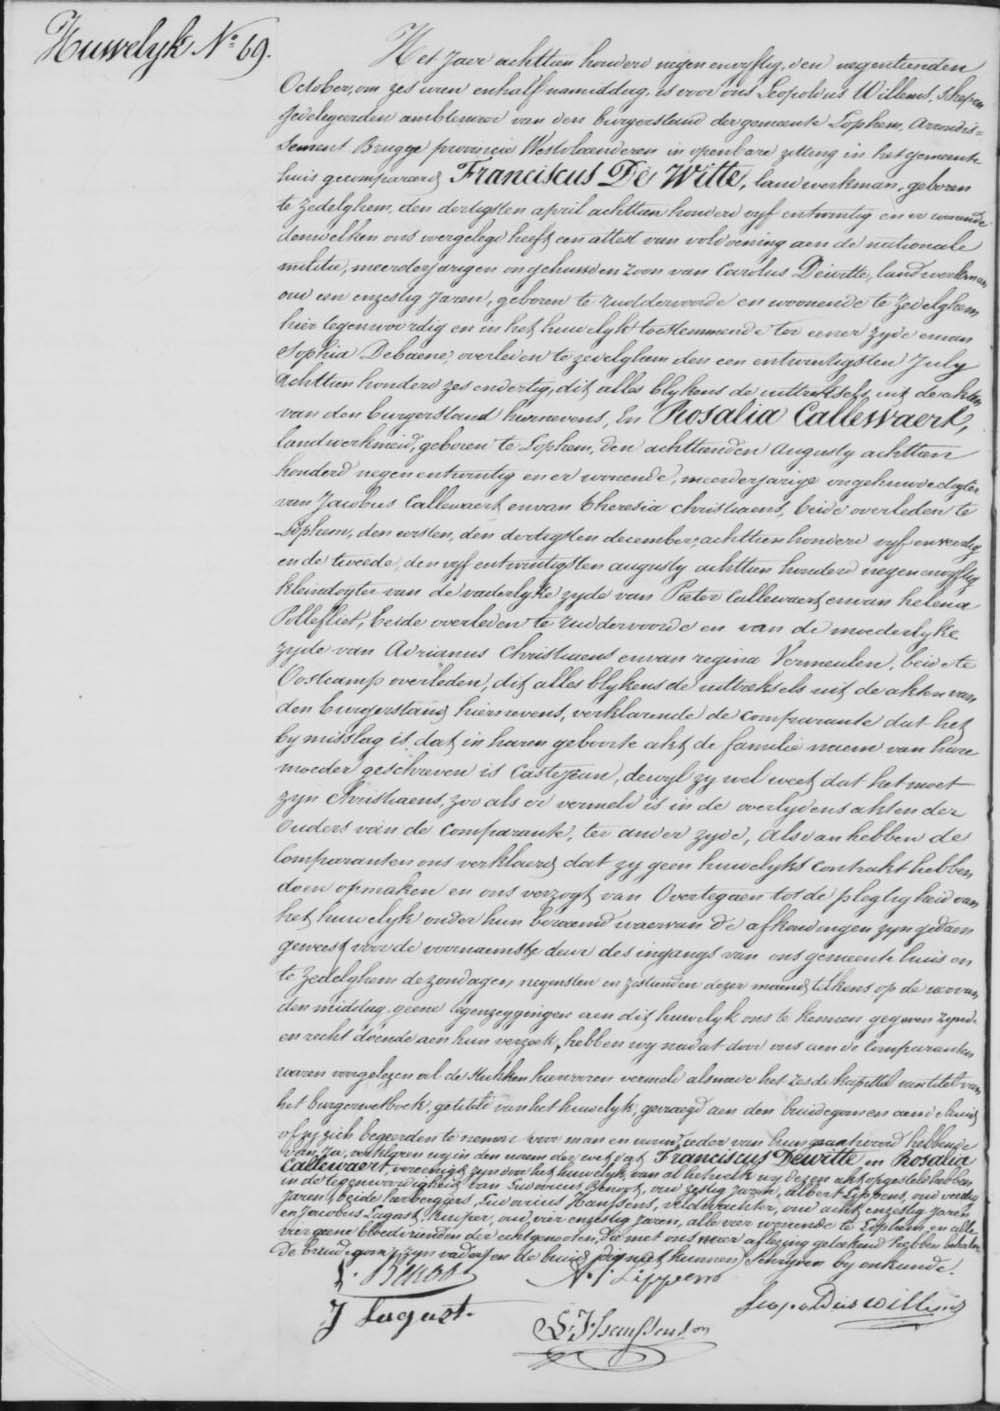 Huwelyk N.º 69.
Het Jaar achttien honderd negen en vyftig, den negentienden
October, om zes uren en half namiddag, is voor ons Leopoldus Willems, Schepen
gedelegeerden ambtenaar van den burgerstand der gemeente Lophem, Arrondis=
sement Brugge provincie Westvlaenderen in openbare zitting in het gemeente
huis gecompareerd Franciscus De Witte, landwerkman, geboren
te Zedelghem, den dertigsten april achttien honderd vyf en twintig en er wonende
denwelken ons overgelegd heeft een attest van voldoening aen de nationale
militie, meerderjarigen ongehuwden zoon van Carolus Dewitte, landwerkman,
oud een en zestig Jaren, geboren te Ruddervoorde en woonende te Zedelghem
hier tegenwoordig en in het huwelyk toestemmende ter eener zyde en van
Sophia Debaene, overleden te Zedelghem den een en twintigsten July
achttien honderd zes en dertig, dit alles blykens de uittreksels uit de akten
van den burgerstand hiernevens, En Rosalia Callewaert,
landwerkmeid, geboren te Lophem, den achttienden Augusty achttien
honderd negen en twintig en er wonende, meerderjarige ongehuwde dogter
van Jacobus Callewaert en van Theresia Christiaens, beide overleden te
Lophem, den eersten, den dertigsten december, achttien honderd vyf en veertig
en de tweede, den vyf en twintigsten augusty achttien honderd negen en vyftig
kleindogter van de vaderlyke zyde van Pieter Callewaert en van helena
Pollefliet, beide overleden te Ruddervoorde en van de moederlyke
zyde van Adrianus Christiaens en van regina Vermeulen, beide te
Oostcamp overleden, dit alles blykens de uittreksels uit de akten van
den burgerstand hiernevens, verklarende de comparante dat het
by misslag is dat in haren geboorte akt de familie naem van hare
moeder geschreven is Castejean, dewyl zy wel weet dat het moet
zyn Christiaens, zoo als er vermeld is in de overlydens akten der
Ouders van de comparante, ter ander zyde, Alsdan hebben de
Comparanten ons verklaerd dat zy geen huwelyks contrakt hebben
doen opmaken en ons verzogt van Overtegaen tot de plegtigheid van
het huwelyk onder hun beraemd waarvan de afkondingen zyn gedaen
geweest voor de voornaemste deur des ingangs van ons gemeente huis en
te Zedelghem de zondagen, negensten en zestienden dezer maand telkens op de
den middag, geene tegenzeggingen aen dit huwelyk ons te kennen gegeven zynde
en recht doende aen hun verzoek, hebben wy nadat door ons aen de Comparanten
waren voorgelezen al de stukken hiervoren vermeld alsmede het zesde kapittel van titel
het burgerwetboek, getiteld van het huwelyk, gevraegd aen den bruidegom en aen de bruid
of zy zich begeerden te nemen voor man en vrouw, ieder van hun geantwoord hebbende
van Ja, verklaren wy in den naem der wet dat Franciscus Dewitte en Rosalia
Callewaert, vereenigd zyn door het huwelyk, van al hetwelk wy dezen akt opgesteld hebben
in de tegenwoordigheid van Ludovicus Benoot, oud zestig Jaren, Albert Lippens, oud veertig
Jaren, beide herbergiers, Ludovicus Hanssens, veldwachter, oud acht en zestig Jaren
en Jacobus Lagast, kuiper, oud vier en zestig Jaren, alle vier wonende te Lophem, en alle
vier geene bloedvrienden der echtgenooten, die met ons naer aflezing geteekend hebben behalve
De bruidegom, zyn vader en de bruid die niet kunnen schryven by onkunde.
L. Benoot A. Lippens
J Lagast. Leopoldus Willems
L. Hanssens